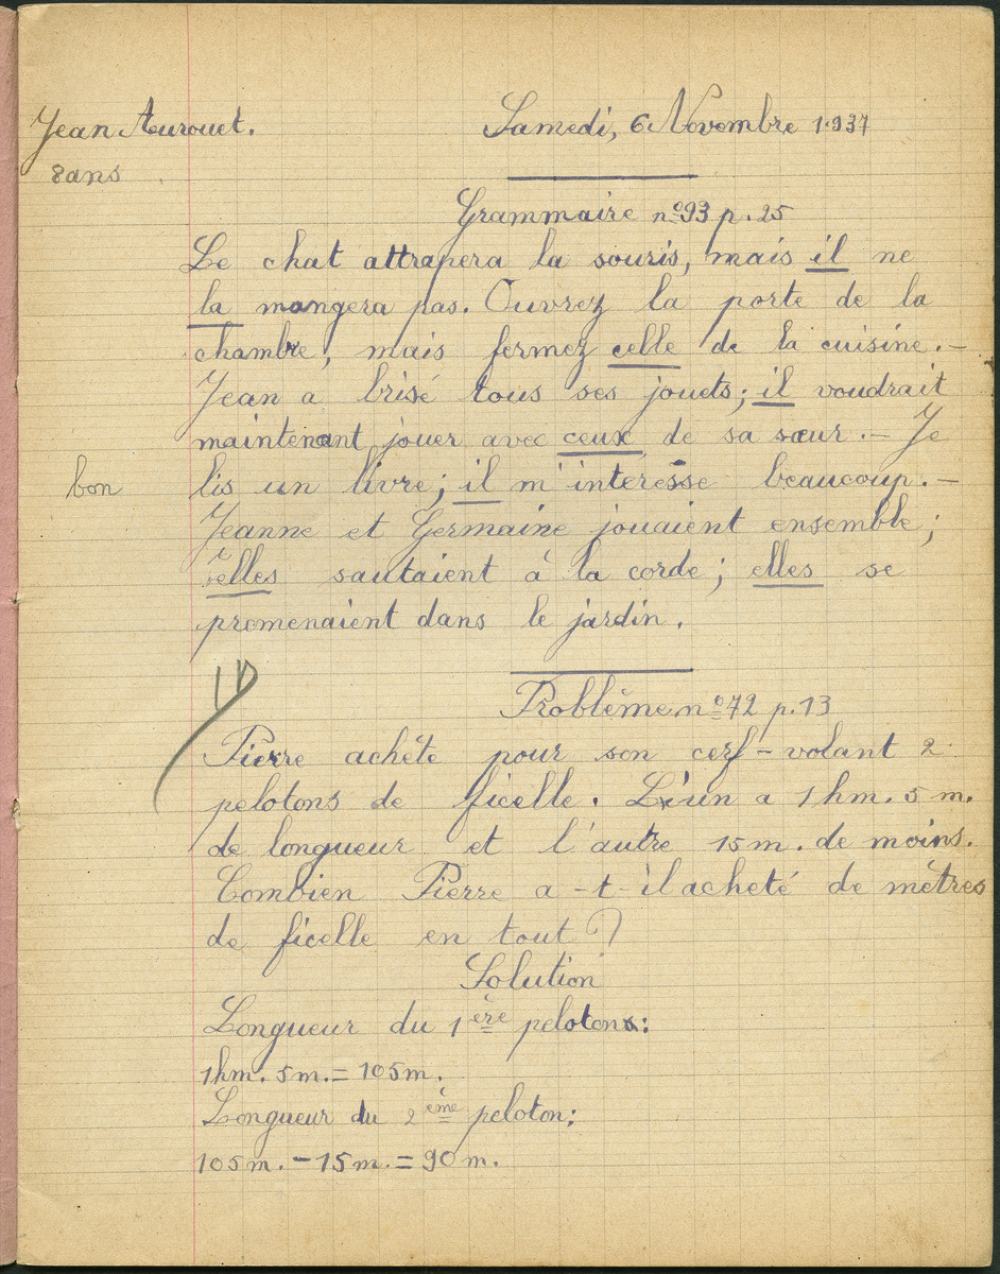 Jean Aurouet. Samedi, 6 Novembre 1937
8ans
Grammaire nº93 p. 25
Le chat attrapera la souris, mais il ne
la mangera pas. Ouvrez la porte de la
chambre, mais fermez celle de la cuisine. –
Jean a brisé tous ses jouets; il voudrait
maintenant jouer avec ceux de sa sœur. – Je
bon lis un livre; il m'intéresse beaucoup. –
Jeanne et Germaine jouaient ensemble;
elles sautaient à la corde; elles se
promenaient dans le jardin.
Problème nº72 p. 13
Pierre achète pour son cerf-volant 2
pelotons de ficelle. L'un a 1 hm. 5 m.
de longueur et l'autre 15 m. de moins.
Combien Pierre a-t-il acheté de mètres
de ficelle en tout?
Solution
Longueur du 1ère peloton:
1hm. 5m. = 105m.
Longueur du 2ème peloton:
105m. – 15m. = 90m.